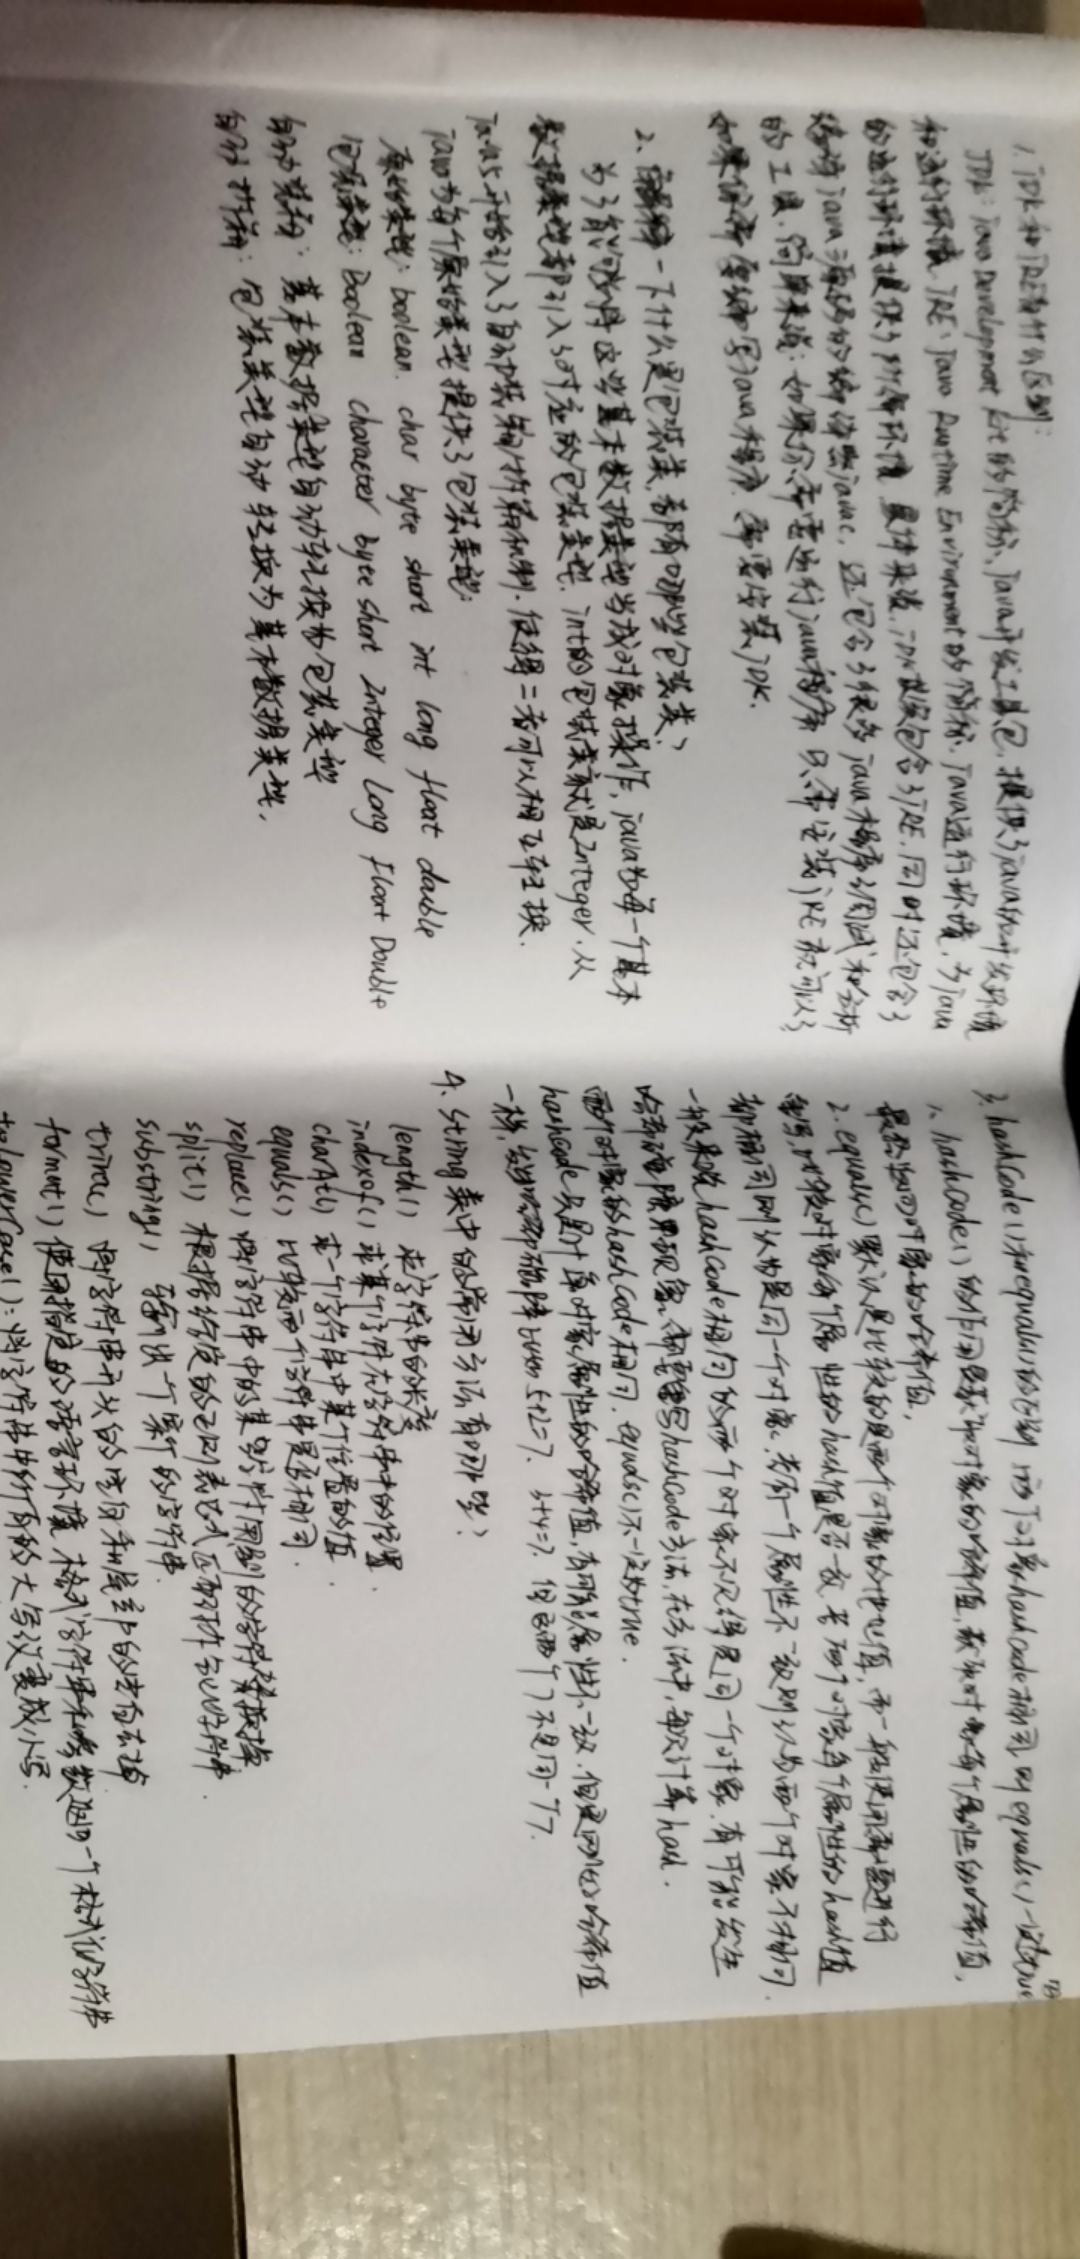 1. JDK和JRE有什么区别:
JDK: java Development Kit的简称、java开发工具包, 提供了java的开发环境
和运行环境, JRE: java Runtime Environment的简称. java运行环境, 为java
的运行环境提供了所需环境 具体来说. JDK其实包含了JRE. 同时还包含了
编译java源码的编译器javac, 还包含了很多java程序调试和分析
的工具. 简单来说: 如果你需要运行java程序 只需安装JRE就可以了
如果你需要编写java程序. 需要安装JDK.
2、解释一下什么是包装类, 都有哪些包装类?
为了能够将这些基本数据类型当成对象操作, java为每一个基本
数据类型都引入了对应的包装类型. int的包装类就是Integer. 从
java5开始引入了自动装箱/拆箱机制. 使得二者可以相互转换.
java为每个原始类型提供了包装类型:
原始类型: boolean. char byte short int long float double
包装类型: Boolean character byte short Integer Long Float Double
自动装箱: 基本数据类型自动转换为包装类型
自动拆箱: 包装类型自动转换为基本数据类型.
3. hashCode()和equals()的区别 两个对象hashCode相同 则equals()一定true
吗
1. hashCode()的作用是获取对象的哈希值, 获取对象每个属性的哈希值,
2. equals()默认是比较的是两个对象的地址值, 而一般使用需要进行
重写, 比较对象每个属性的hash值是否一致, 若两个对象每个属性的hash值
都相同则认为是同一个对象. 若有一个属性不一致则认为两个对象不相同.
一般来说hashCode相同的两个对象不仅仅是同一个对象. 有可能发生
哈希碰撞现象, 需要重写hashCode方法, 在方法中, 每次计算hash.
两个对象的hashCode相同. equals()不一定为true.
hashCode只是计算对象属性的哈希值, 有可能属性不一致. 但是
5+2=7. 3+4=7. 但这两个7不是同一个7.
4、String类中的常用方法有哪些?
length() 求字符串的长度
indexof() 求某个字符在字符串中的位置.
charAt() 求一个字符串中某个位置的值
equals() 比较两个字符串是否相同.
replace() 将字符串中的某些字符用别的字符替换掉
split() 根据给定的正则表达式
substring() 输出一个 的字符串.
trim() 将字符串开头的空白和结尾的空白去掉
format() 使用指定的语言环境, 格式字符串和参数返回一个格式化字符串
toLowerCase(): 将字符串中所有的大写改变成小写.